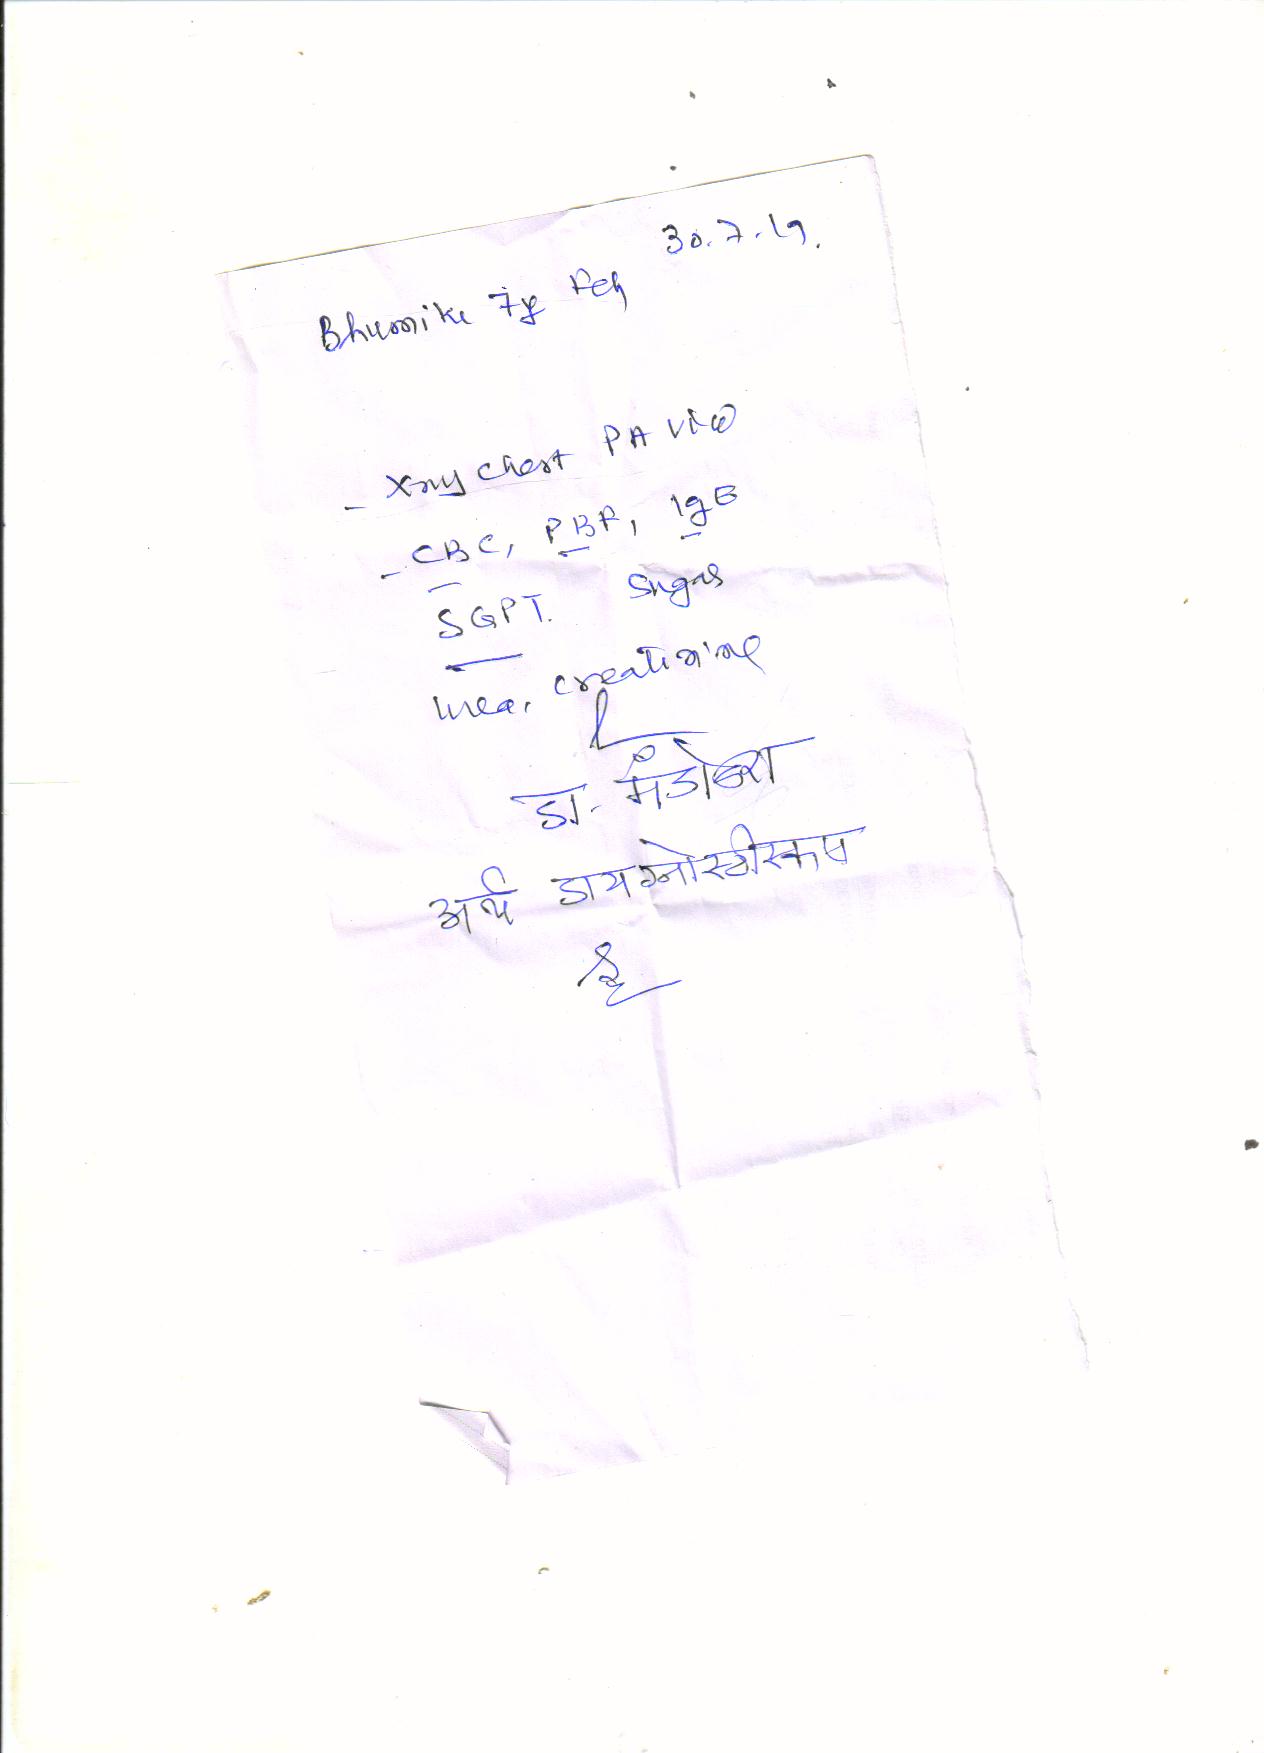 30.7.19.
Bhumike 7y Feh
- Xray Chest PA View
- CBC, PBF, IgE
SGPT. Sugar
Urea, creatinine
डा. मंडोवरा
अर्थ डायग्नोस्टीस्कप